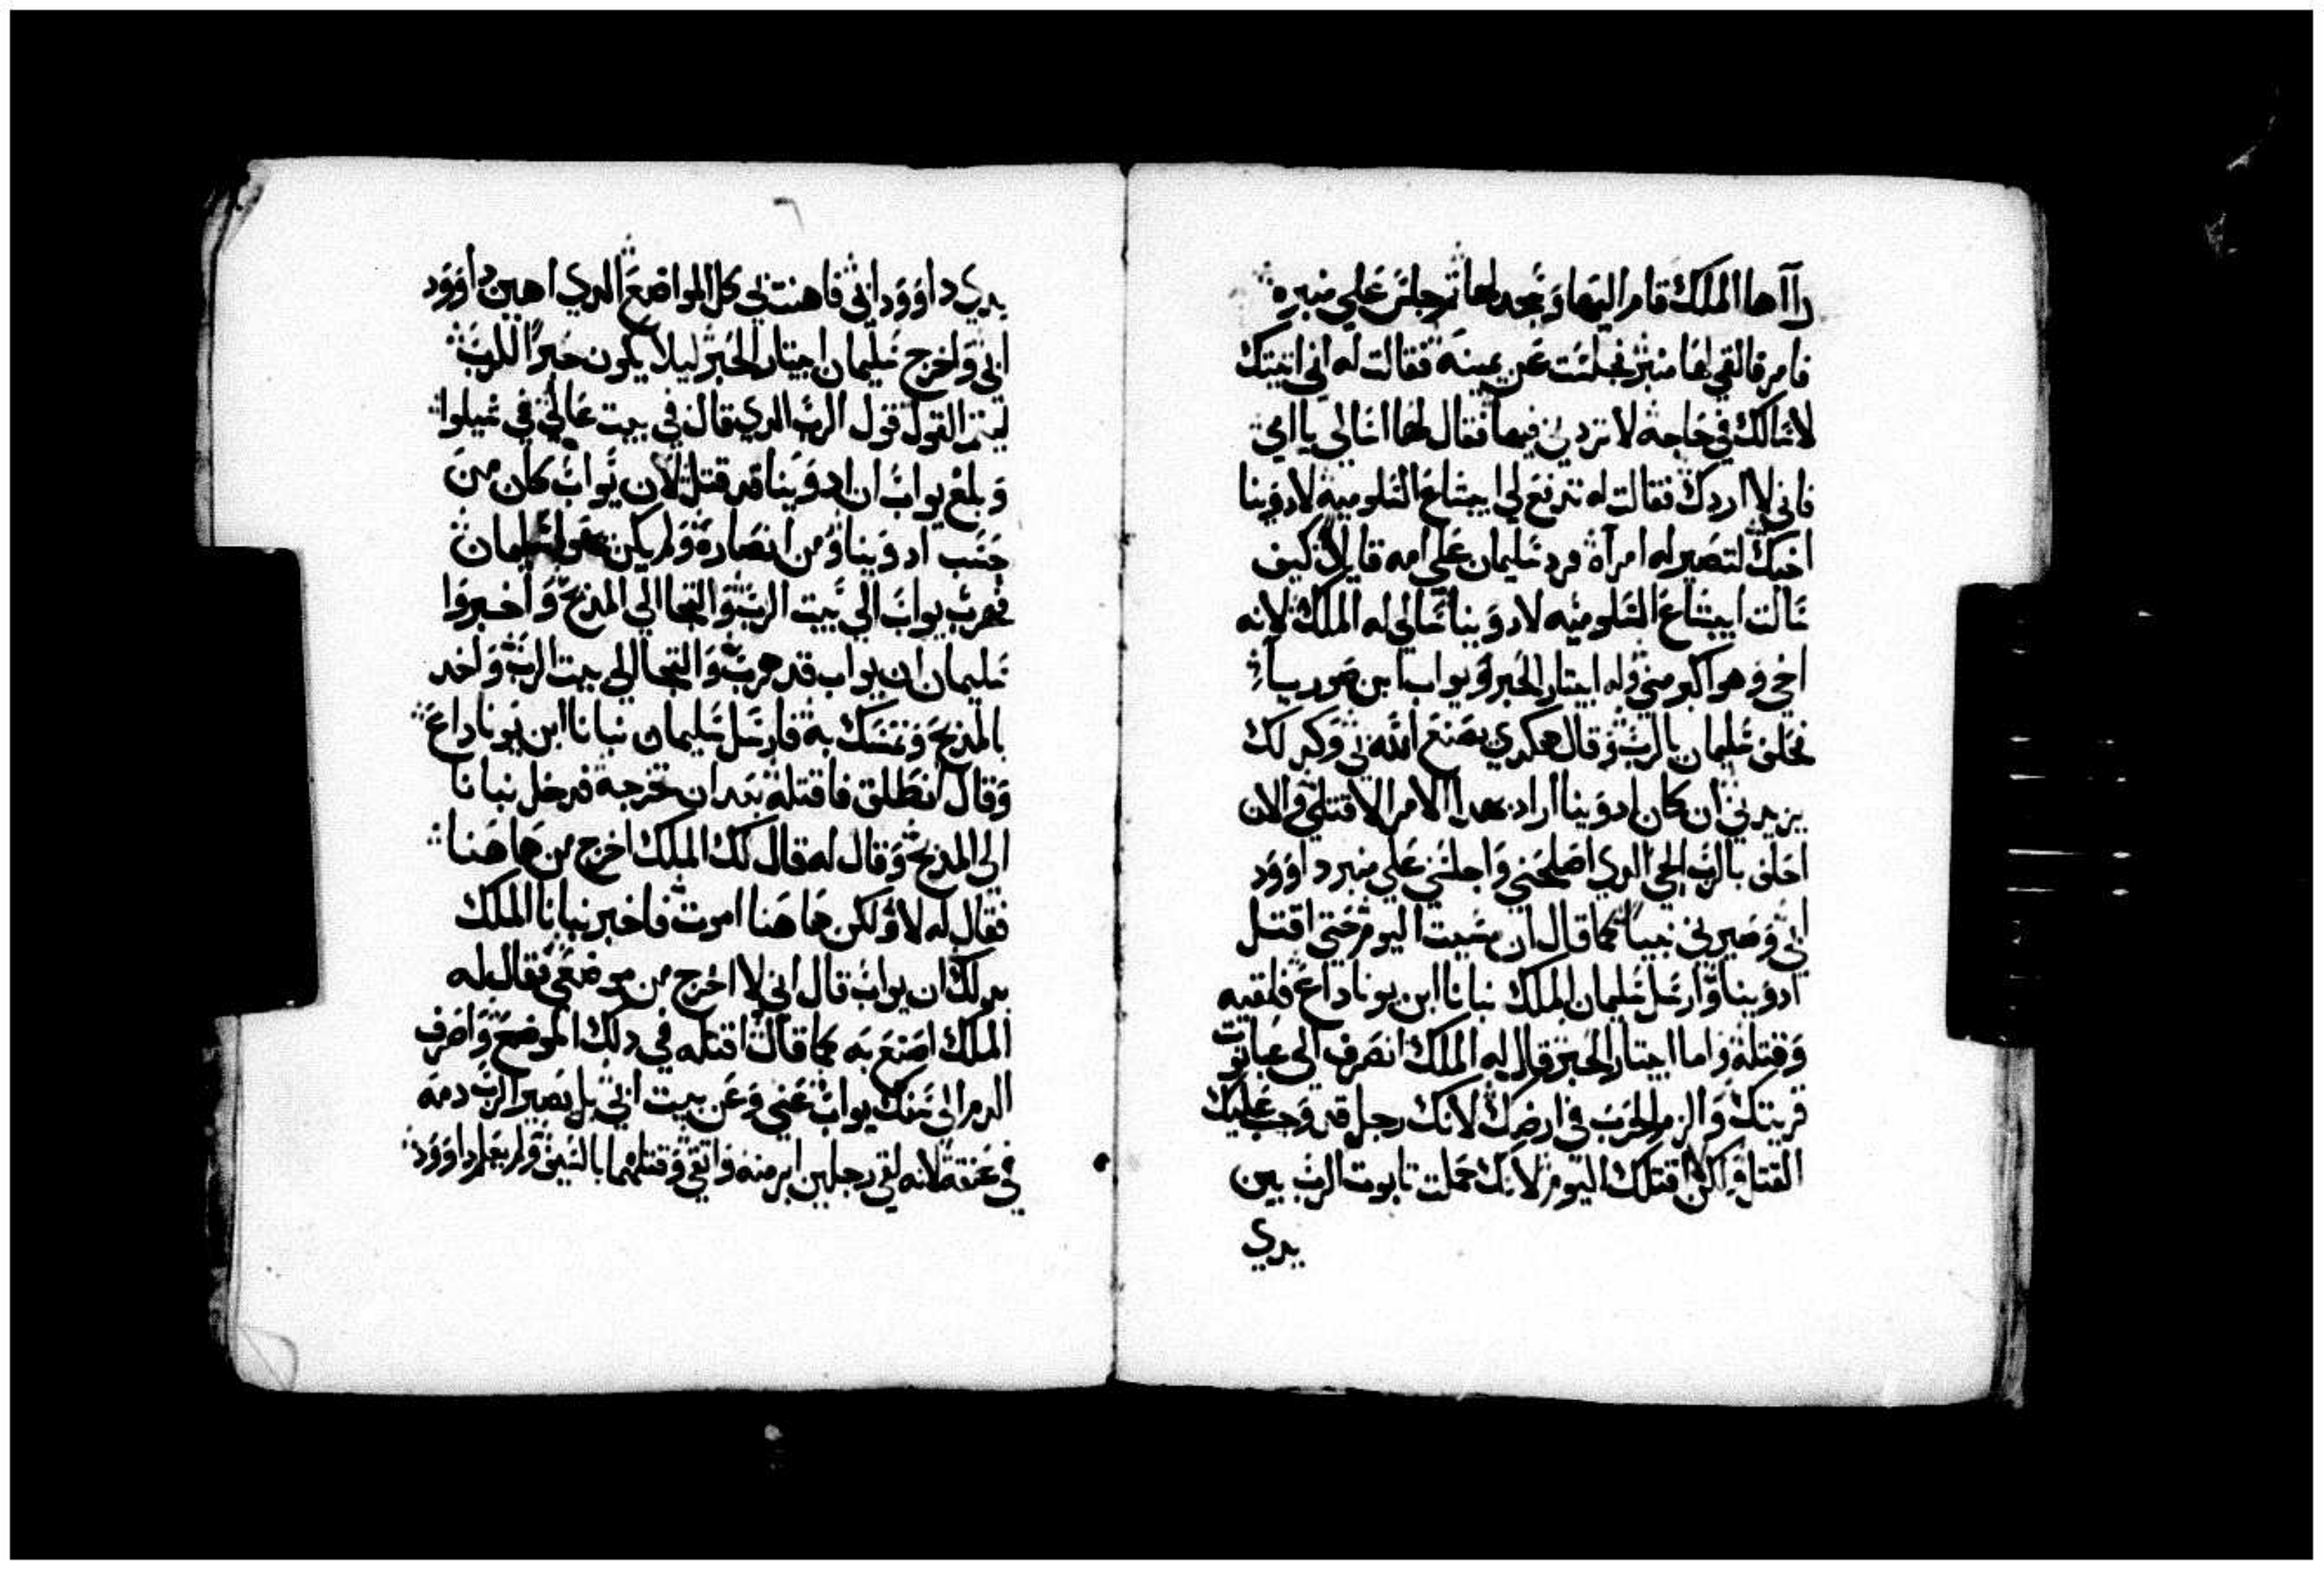 رآآها الملك قام اليها وسجد لها ثم جلس علي منبره
فامر فالقي لها منبر فجلست عن يمينه فقالت له اني اتيتك
لاسالك في حاجه لا تردني فيها فقال لها اسالي يا امي
فاني لا اردك فقالت له تدفع لي ابيشاع الشلوميه لادونيا
اخيك لتصير له امرآة فرد سليمان علي امه قايلا كيف
سالت ابيشاع الشلوميه لادونيا سالي له الملك لانه
اخي وهو اكبر مني وله ابيتار الحبر ويواب ابن صوريا
فحلف سليمان بالرب وقال هكدي يصنع الله بي وكدلك
يزيدني ان كان ادونيا اراد بهدا الامر الا قتلي والان
احلف بالرب الحي الدي اصلحني واجلسني علي منبر داوود
ابي وصيرني نبيا كما قال ان مسيت اليوم حتي اقتل
ادونيا وارسل سليمان الملك نبانا ابن يوناداع فلقيه
وقتله واما ابيتار الحبر قال له الملك انصرف الي عباتوت
قريتك والزم الحرب في ارضك لانك رجل قد وجب عليك
القتل ولكن اقتلك اليوم لانك حملت تابوت الرب بين
يدي
يدي داوود ابي فاهنت في كل المواضع الدي اهين داوود
ابي واخرج سليمان ابيتار الحبر ليلا يكون حبرا للرب
ليتم القول قول الرب الدي قال في بيت عالي في شيلوا
وبلغ يواب ان ادونيا قد قتل لان يواب كان من
جنب ادونيا ومن انصاره ولم يكن هو لسليمان
فهرب يواب الي بيت الرب والتجا الي المدبح واخبروا
سليمان ان يواب قد هرب والتجا الي بيت الرب واخد
بالمدبح وتمسك به فارسل سليمان نبانا ابن يوناداع
وقال انطلق فاقتله بعد ان تخرجه فدخل نبانا
الي المدبح وقال له قال لك الملك اخرج من هاهنا
فقال له لا ولكن هاهنا اموت فاخبر نبانا الملك
بدلك ان يواب قال اني لا اخرج من موضعي فقال له
الملك اصنع به كما قال اقتله في دلك الموضع واصرف
الدم الي سفك يواب عني وعن بيت ابي بل يصير الرب دمه
في عنقه لانه لقي رجلين ابر منه واتقي وقتلهما بالسيف ولم يعلم داوود